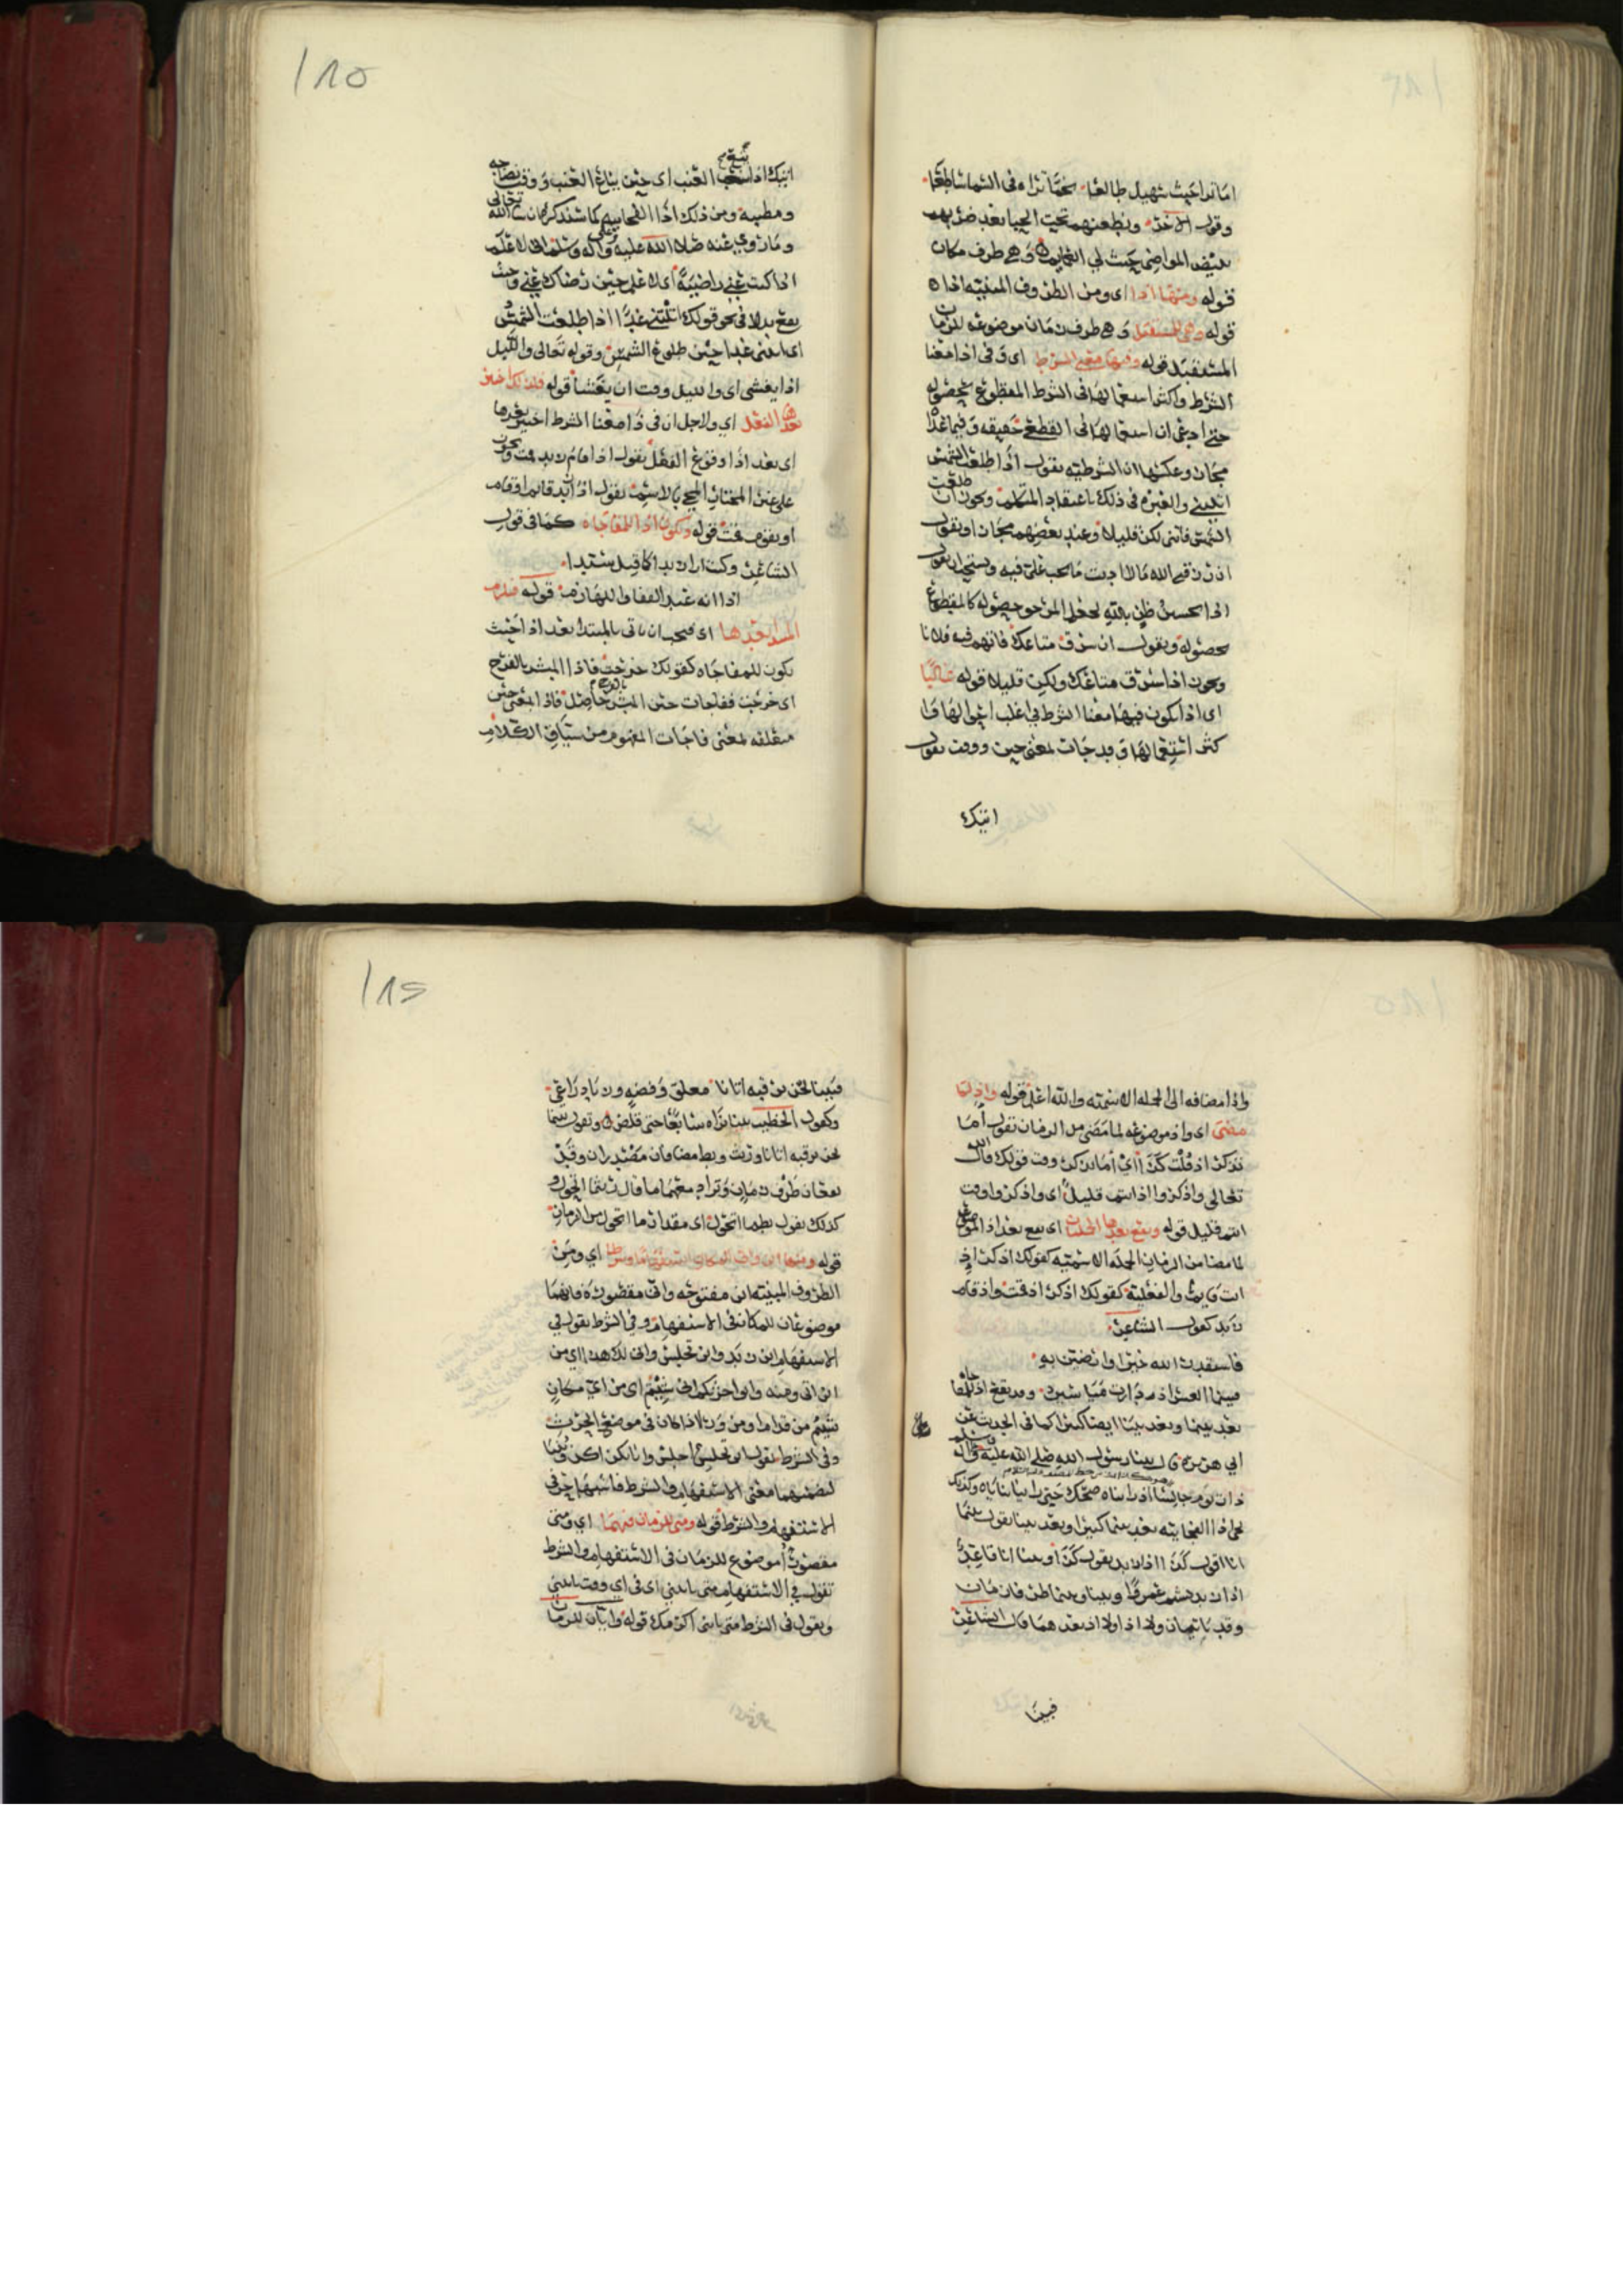 اما ترا حيث سهيل طالعا نجما تراه فى السما ساطعا
وقول الاخر ونطعنهم تحت الحبا بعد ضربهم
ببيض المواضى حيث لي العمايم وهي ظرف مكان
قوله ومنها اذا اى ومن الظروف المبنيه اذا
قوله وهي للمستقبل وهي ظرف زمان موضوعه للزمان
المستقبل قوله وفيها معنى الشرط اى وفى اذا معنا
الشرط واكثر استعمالها فى الشرط المقطوع بحصوله
حتى ادعى ان استعمالها فى القطع حقيقه وفيما عداه
مجاز وعكسها ان الشرطيه تقول اذا طلعت الشمس
والعبره فى ذلك باعتقاد المتكلم ويجوز ان طلعت
الشمس فاتنى لكن قليلا وعند بعضهم مجاز او تقول
اذا رزقنى الله مالا
اذا لحسن ظن بالله لجعل المرجو حصوله كالمقطوع
بحصوله وتقول ان سرق متاعك فاتهم فيه فلانا
ويجوز اذا سرق متاعك ولكن قليلا قوله غالبًا
اى اذا يكون فيها معنا الشرط في اغلب احوالها وا
كثر استعمالها وقد جات لمعنى حين ووقت تقول
اتيك
١٨٥
العنب اى حين يبلغ العنب ووقت نضاجه
ومطيبه ومن ذلك اذا الفجاييه كما سنذكره ان شا الله تعالى
وما روي عنه صلا الله عليه وعلى واله وسلم انى لاعلم
اذا كنت عني راضيةً اى لاعلم حين رضاك عني وحيث
يقع بدلا فى نحو قولك اتيتنى غدا اذا طلعت الشمس
اى ائتنى غدا حين طلوع الشمس وقوله تعالى والليل
اذا يغشى اى والليل وقت ان يغشا قوله فلذلك اختير
بعدها الفعل اي ولاجل ان فى ذا معنا الشرط اختير بعدها
اى بعد اذا وقوع الفعل تقول اذا قام زيد قمت ويجوز
على غير المختار المجي بالاسم تقول اذا زيد قايم او قام
او يقوم قمت قوله وتكون اذا للمفاجاه كما فى قول
الشاعر وكنت ارا زيدا كما قيل سيدا
اذا انه عبد القفا واللهازم قوله فيلزم
المبتدا بعدها اى فيجب ان ياتى بالمبتدا بعد اذا حيث
تكون للمفاجاه كقولك خرجت فاذا السبع بالفتح
اى خرجت ففاجات حين السبع حاصل فاذا بمعنى حين
متعلقه بمعنى فاجات المفهوم من سياق الكلام
واذا مضافه الى الجمله الاسميه والله اعلم قوله واذ لما
مضى اى واذ موضوعه لما مضى من الزمان تقول اما
تذكر اذ قلت كذا اي اما تذكر وقت قولك قال الله
تعالى واذكروا اذ انتم قليل اى واذكروا وقت
انتم قليل قوله وتقع بعدها الجملتان اى يقع بعد اذ الموضوعه
لما مضا من الزمان الجمله الاسميه كقولك اذكر اذ
انت قايم والفعلية كقولك اذكر اذ قمت واذ قام
زيد كقول الشاعر
فاستقدر الله خيرا وارضين به
فبينما العسر اذ دارت مياسير وقد يقع اذ للمفاجاه
بعد بينما وبعد بينا ايضا كثيرا كما فى الحديث عن
ابي هريره قال بينا رسول الله صلى الله عليه واله وسلم
ذات يوم جالسا اذ راناه ضحك حتى رانيا ناياه وكذلك
تجى اذا الفجاييه بعد بينما كثيرا وبعد بينا تقول بينما
انا اقول كذا اذا زيد يقول كذا او بينا انا قاعد
اذا زيد يشتم عمروا وبينا وبينما ظرفا زمان
وقد ياتيان ولا اذا ولا اذ بعدهما قال الشاعر
فبينا
١٨٦
فبينا نحن نرقبه اتانا معلق وفضه وزناد راعي
وكقول الخطيب بينا تراه سابغا حتى قلص وتقول بينما
نحن نرقبه اتانا وريث وبط مضافان مصدران وقد
يقعان ظرف زمان وتراد معهما ما قال ريثما اتحول و
كذلك تقول بطما اتحول اى مقدار ما اتحول من الزمان
قوله ومنها اين وانى للمكان استفهاما وشرطا اي ومن
الظروف المبنيه اين مفتوحه وانى مقصوره فانهما
موضوعان للمكان فى الاستفهام وفى الشرط تقول في
الاستفهام اين زيد واين تجلس وانى لك هذا اي من
اين اتى ومنه واتوا حرثكم انى شيتم اى من اي مكان
شيتم من قدام او من ورا اذا كان فى موضع الحرث
وفى الشرط تقول اين تجلس اجلس وانا تكن اكن وبنيا
لتضمنهما معنى الاستفهام والشرط فاشبها حرفى
الاستفهام والشرط قوله ومتى للزمان فيهما اى ومتى
مقصورا موضوع للزمان فى الاستفهام والشرط
تقول في الاستفهام متى تاتنى اى فى اي وقت تاتنى
وتقول فى الشرط متى تاتنى اكرمك قوله وايان للزمان